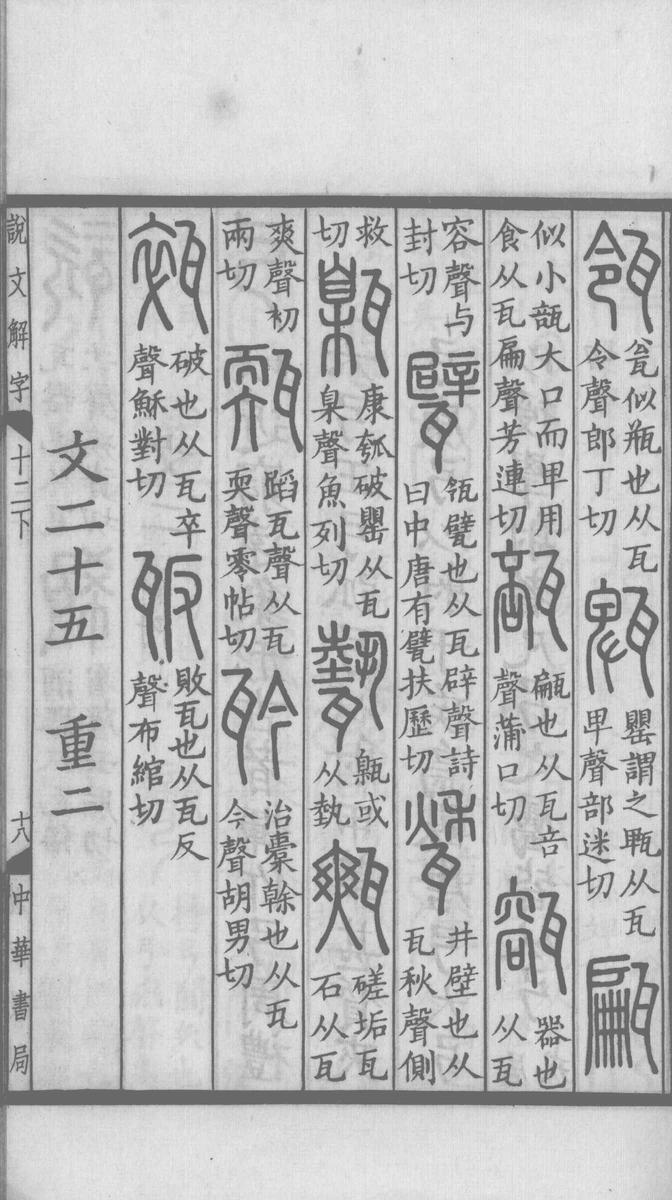 瓴瓮似瓶也从瓦令聲郎丁切㼰甖謂之㼰从瓦卑聲部迷切甂
似小瓿大口而卑用食从瓦扁聲芳連切瓿甂也从瓦咅聲蒲口切㼸器也从瓦
容聲与封切甓瓴甓也从瓦辟聲詩曰中唐有甓扶歷切甃井壁也从瓦秋聲側
救切甈康瓠破罌从瓦臬聲魚列切甈或从埶㼽磋垢瓦石从瓦
爽聲初兩切蹈瓦聲从瓦耎聲零帖切治橐榦也从瓦今聲胡男切
㼱破也从瓦卒聲穌對切瓪敗瓦也从瓦反聲布綰切
文二十五 重二
說文解字 十二下 十八 中華書局